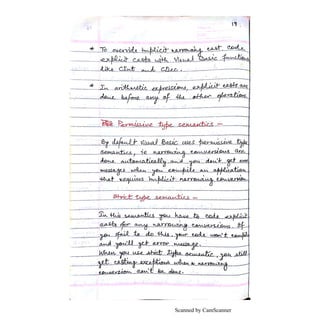 19
* To override implicit narrowing cast, code
explicit casts with Visual Basic functions
like CInt and CDec.
* In arithmetic expressions, explicit casts are
done before any of the other operations.
Permissive type semantics -
By default Visual Basic uses permissive type
semantics, ie narrowing conversions are
done automatically and you don't get error
messages when you compile an application
that requires implicit narrowing conversion.
Strict type semantics -
In this semantics you have to code explicit
casts for any narrowing conversions. If
you fail to do this, your code won't compile
and you'll get error message.
When you use strict type semantic, you still
get casting exceptions when a narrowing
conversion can't be done.
Scanned by CamScanner